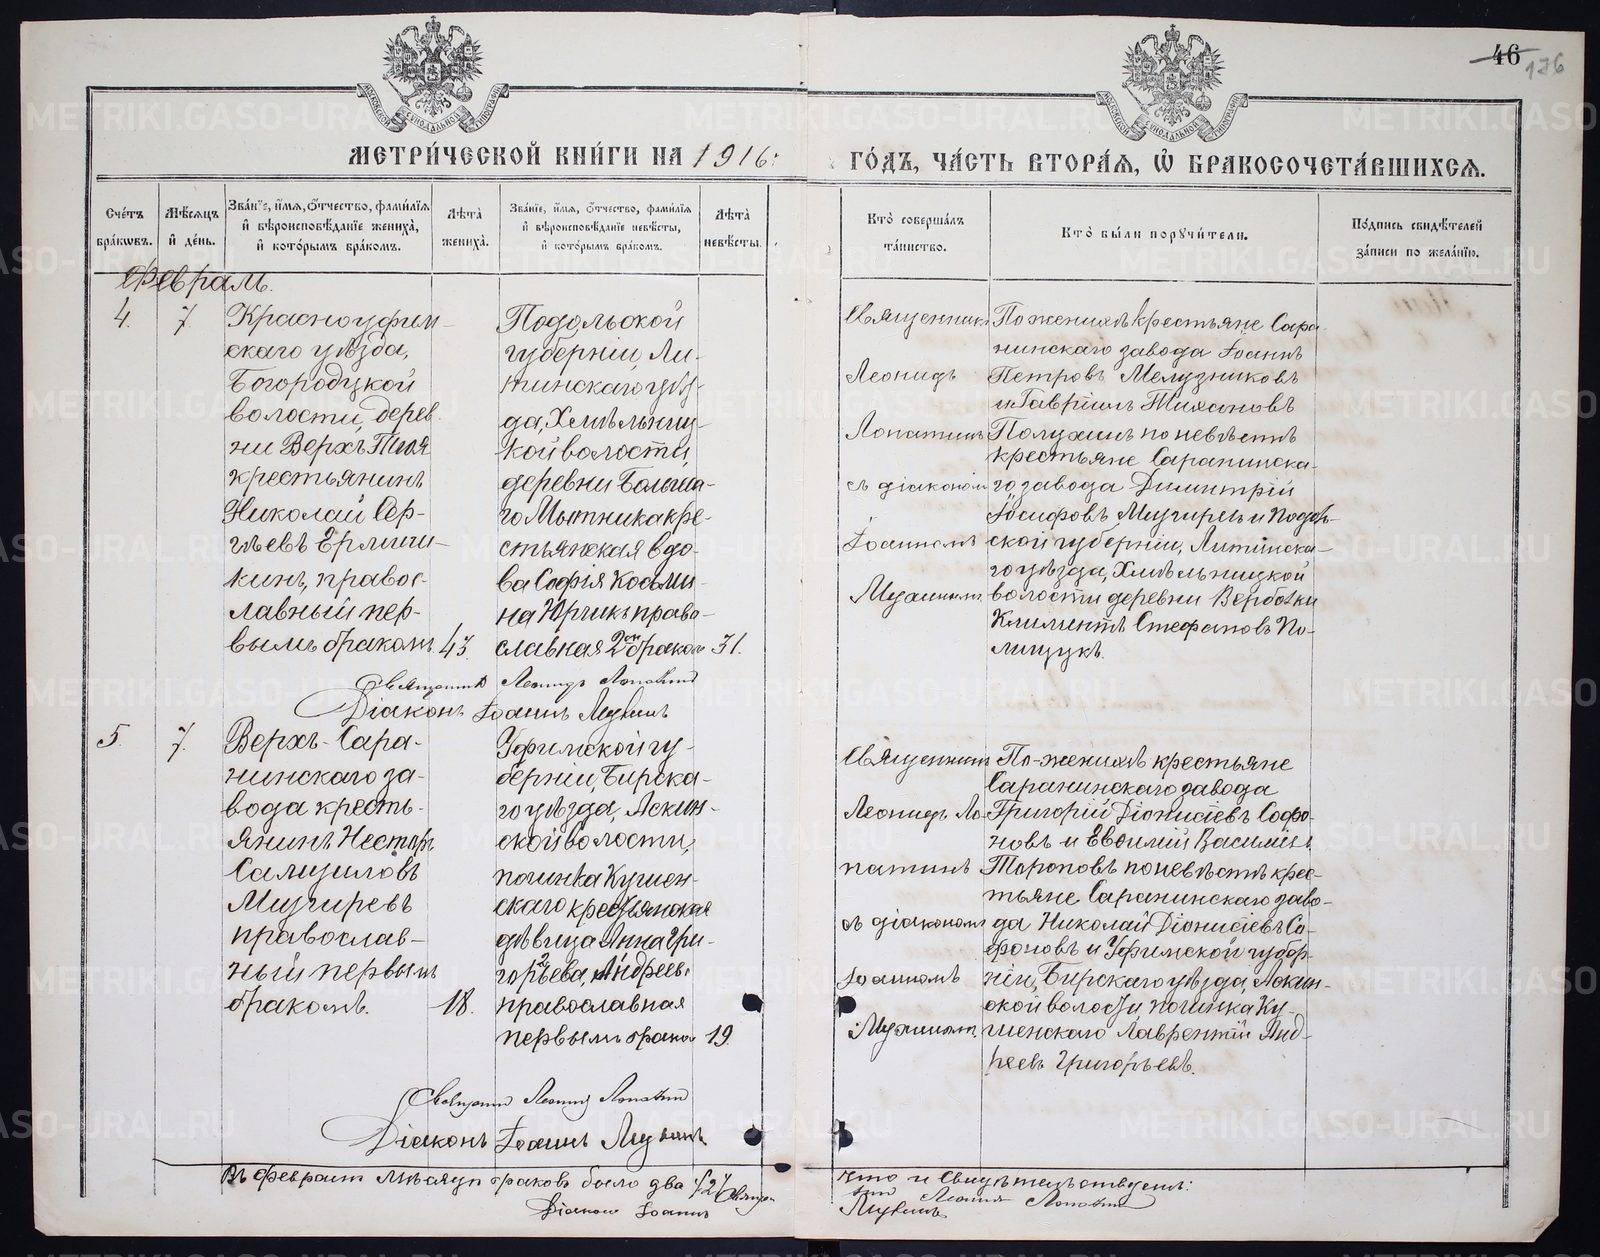 46
136
МЕТРИ́ЧЕСКОЙ КНИ́ГИ НА 1916
ГО́ДЪ, ЧА́СТЬ ВТОРА́Я, Ѡ҆ БРАКОСОЧЕТА́ВШИХСЯ.
Сче́тъ бра́кѡвъ.
Мѣ́сяцъ и҆ де́нь.
Зва́нїе, и҆́мя, ѻ҆́тчество, фами́лїя и҆ вѣроисповѣ́данїе жениха̀, и҆ кото́рымъ бра́комъ.
Лѣ́та жениха̀.
Зва́нїе, и҆́мя, ѻ҆́тчество, фами́лїя и҆ вѣроисповѣ́данїе невѣ́сты, и҆ кото́рымъ бра́комъ.
Лѣ́та невѣ́сты.
Кто̀ соверша́лъ та́инство.
Кто̀ бы́ли поручи́тели.
По́дпись свидѣ́телей за́писи по жела́нїю.
Февраль.
4.
7.
Красноуфим-
скаго уѣзда,
Богородцкой
волости, дерев
ни Верхъ Тиса
крестьянинъ
Николай Сер-
гѣевъ Ермичи-
кинъ, правос-
лавный пер-
вымъ бракомъ
43.
Подольской
губерніи, Ли-
тинскаго уѣз-
да, Хмѣльниц-
кой волости,
деревни Больша-
го Мытника кре-
стьянская вдо-
ва Софія Косьми-
на Юрчикъ право-
славная 2мъ бракомъ
31.
Священникъ
Леонидъ
Лопатинъ
съ діакономъ
Іоанномъ
По женихѣ крестьяне Сара-
нинскаго завода Іоаннъ
Петровъ Мелузниковъ
и Гавріилъ Тихановъ
Полухинъ по невѣстѣ
крестьяне Саранинска-
го завода Димитрій
Іосифовъ Мичиревъ и Подоль-
ской губерніи, Литинска-
го уѣзда, Хмѣльницкой
волости деревни Вербовки
Климентъ Стефановъ По-
лищукъ.
Священникъ Леонидъ Лопатинъ
Діаконъ Іоаннъ
5.
7.
Верхъ-Сара-
нинскаго за-
вода кресть-
янинъ Несторъ
Самуиловъ
Мичиревъ
православ-
ный первымъ
бракомъ.
18.
Уфимской гу-
берніи, Бирска-
го уѣзда, Аскин-
ской волости,
починка Кушен-
скаго крестьянская
дѣвица Анна Гри-
горьева, Андреев.
православная
первымъ бракомъ
19
Священникъ
Леонидъ Ло-
патинъ
съ діакономъ
Іоанномъ
По женихѣ крестьяне
Саранинскаго завода
Григорій Діонисіевъ Софо-
новъ и Евѳимій Васильевъ
Тороповъ по невѣстѣ крес-
тьяне Саранинскаго заво-
да Николай Діонисіевъ Со-
фоновъ и Уфимской губер-
ніи, Бирскаго уѣзда, Аскин-
ской волости, починка Ку-
шенскаго Лаврентій Анд-
реевъ Григорьевъ.
Священникъ Леонидъ Лопатинъ
Діаконъ Іоаннъ
Въ Февралѣ мѣсяцѣ браковъ было два /2/
что и свидѣтельствуемъ:
Леонидъ Лопатинъ
Діаконъ Іоаннъ